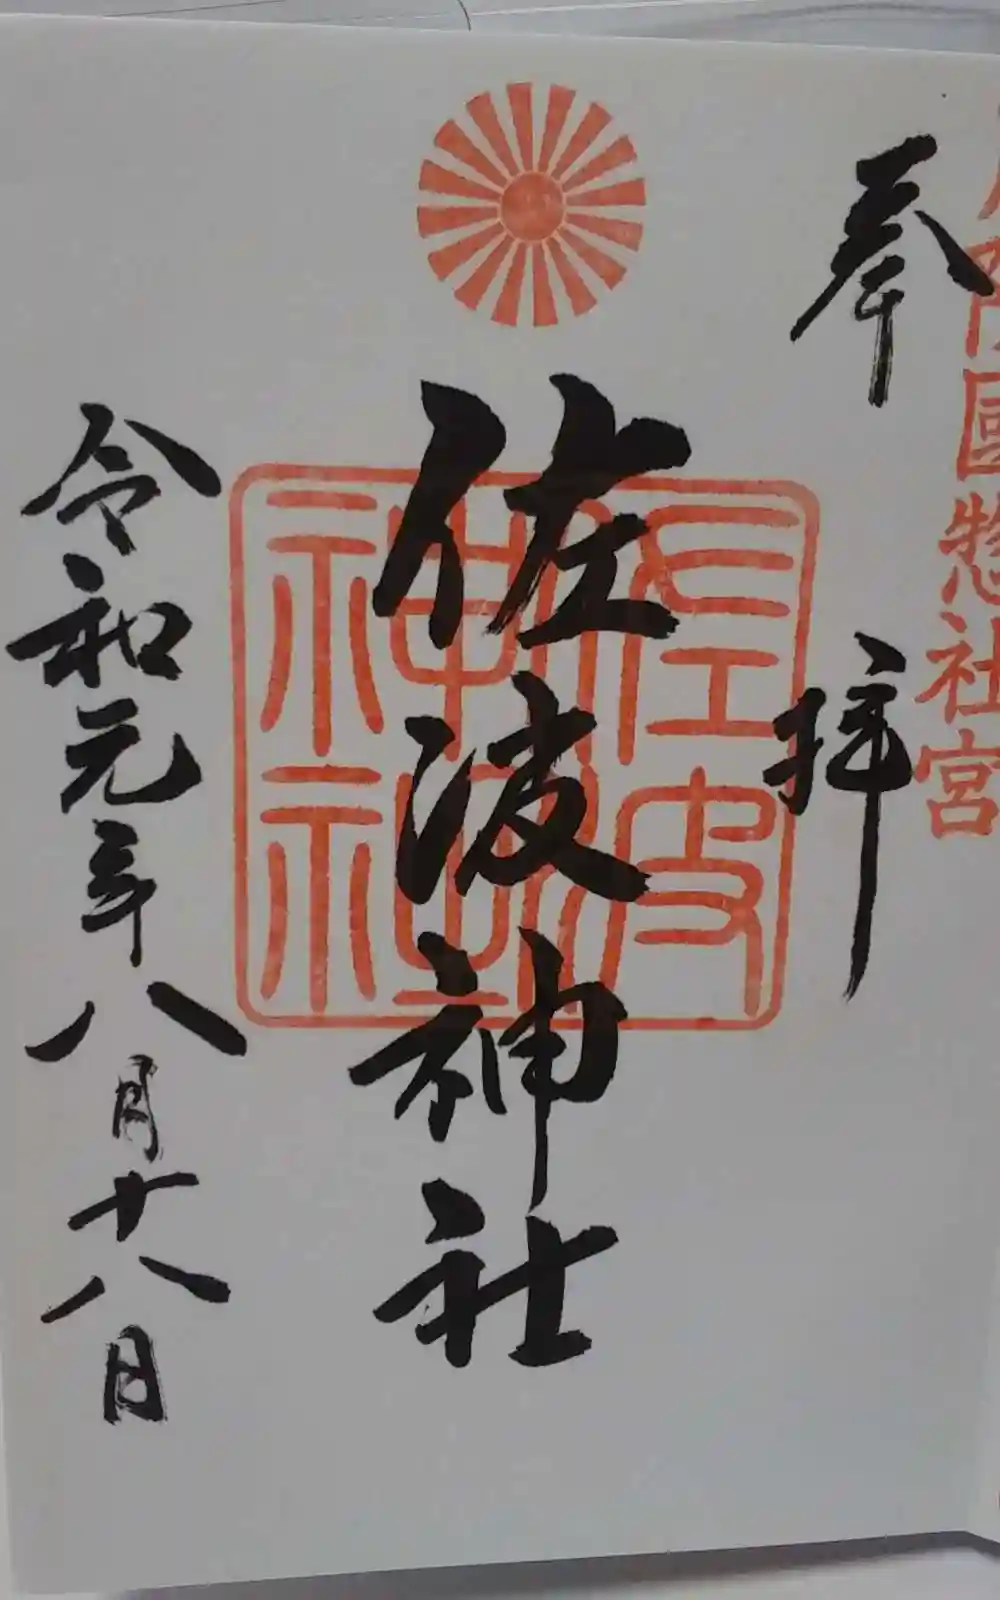 國惣社宮
奉拝
佐波神社
佐波神社
令和元年八月十八日